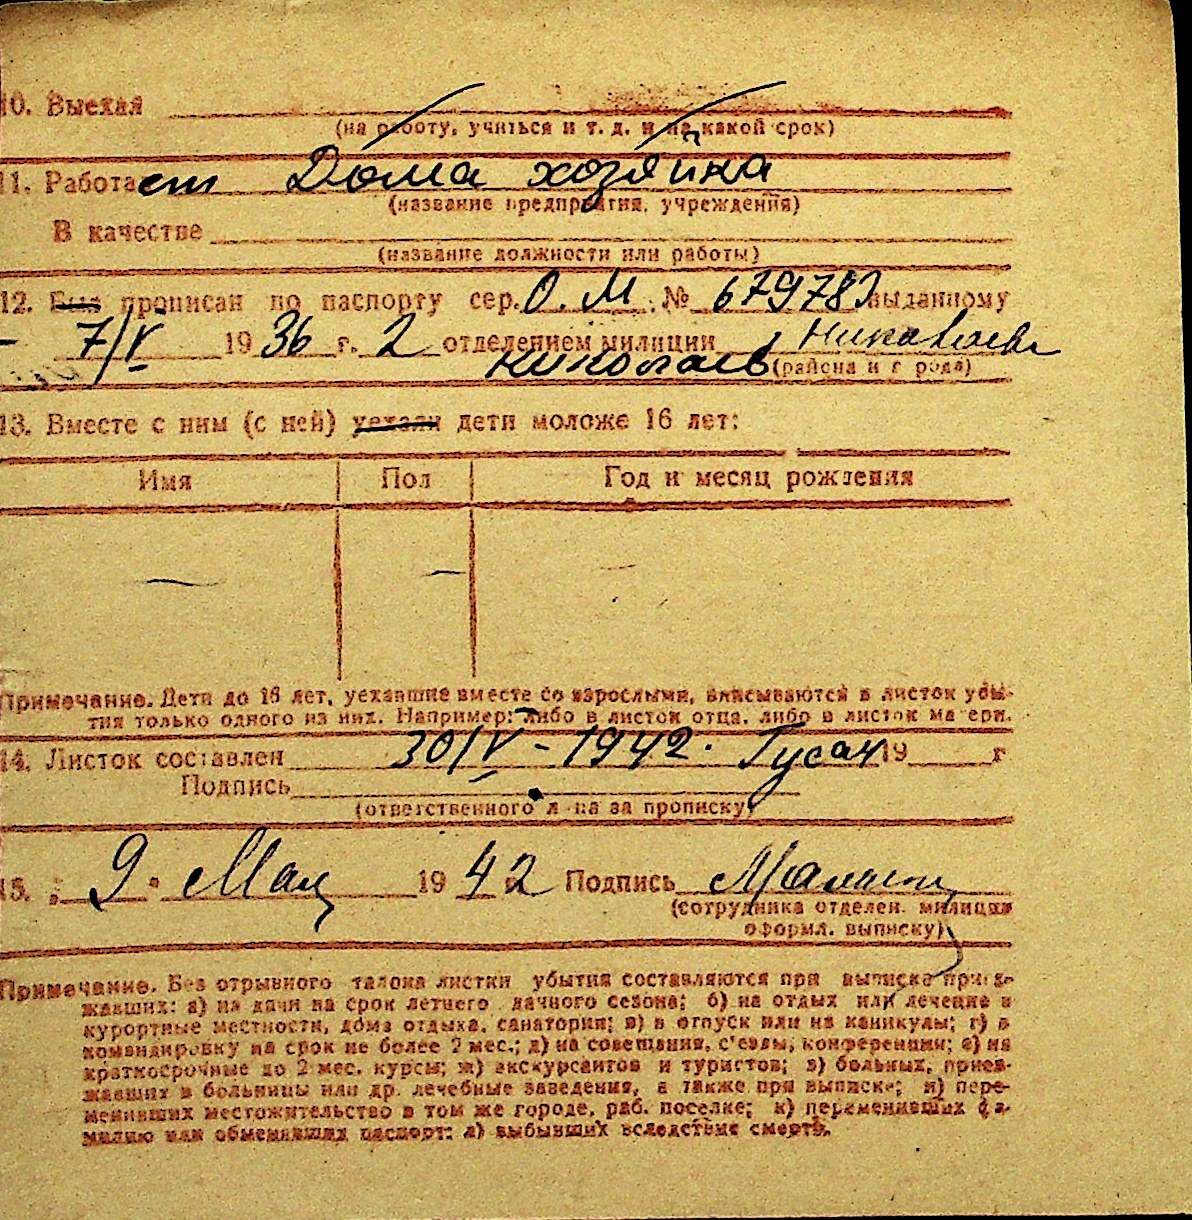 10. Выехал
(на работу, учиться и т. д. и на какой срок)
11. Работает Дома хозяйка
(название предприятия, учреждения)
В качестве
(название должности или работы)
12. Был прописан по паспорту сер. О. М № выданному
7/V 1936 г. 2 отделением милиции Николаева
Николаев (района и города)
13. Вместе с ним (с ней) уехали дети моложе 16 лет:
Имя Пол Год и месяц рождения
— — —
Примечание. Дети до 16 лет, уехавшие вместе со взрослыми, вписываются в листок убы-
тия только одного из них. Например: либо в листок отца, либо в листок матери.
14. Листок составлен 30/V - 1942. Гусач 19 г
Подпись
(ответственного л-на за прописку)
15. " 9 " Мая 1942 Подпись
(сотрудника отделен. милиции
оформл. выписку)
Примечание. Без отрывного талона листки убытия составляются при выписке приез-
жавших: а) на дачи на срок летнего дачного сезона; б) на отдых или лечение в
курортные местности, дома отдыха, санатории; в) в отпуск или на каникулы; г) в
командировку на срок не более 2 мес.; д) на совещания, с'езды, конференции; е) на
краткосрочные до 2 мес. курсы; ж) экскурсантов и туристов; з) больных, приез-
жавших в больницы или др. лечебные заведения, а также при выписке; и) пере-
менивших местожительство в том же городе, раб. поселке; к) переменивших фа-
милию или обменявших паспорт; л) выбывших вследствие смерти.